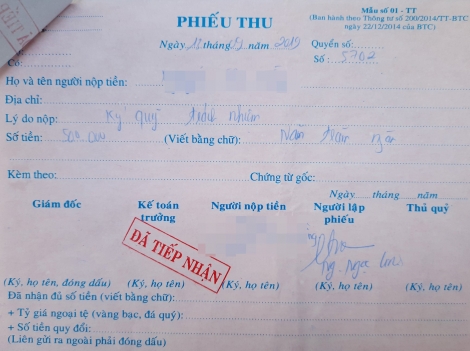 PHIẾU THU
Mẫu số 01 - TT
(Ban hành theo Thông tư số 200/2014/TT-BTC
ngày 22/12/2014 của BTC)
Ngày 11 tháng năm 2019
Quyển số:
Số: 5702
Có:
Họ và tên người nộp tiền:
Địa chỉ:
Lý do nộp: Ký quỹ trách nhiệm
Số tiền: 500 000 (Viết bằng chữ): Năm trăm
Kèm theo: Chứng từ gốc:
Ngày tháng năm
Giám đốc Kế toán trưởng Người nộp tiền Người lập phiếu Thủ quỹ
ĐÃ TIẾP NHẬN
Ng. Ngọc
(Ký, họ tên, đóng dấu) (Ký, họ tên) (Ký, họ tên) (Ký, họ tên) (Ký, họ tên)
Đã nhận đủ số tiền (viết bằng chữ):
+ Tỷ giá ngoại tệ (vàng bạc, đá quý):
+ Số tiền quy đổi:
(Liên gửi ra ngoài phải đóng dấu)